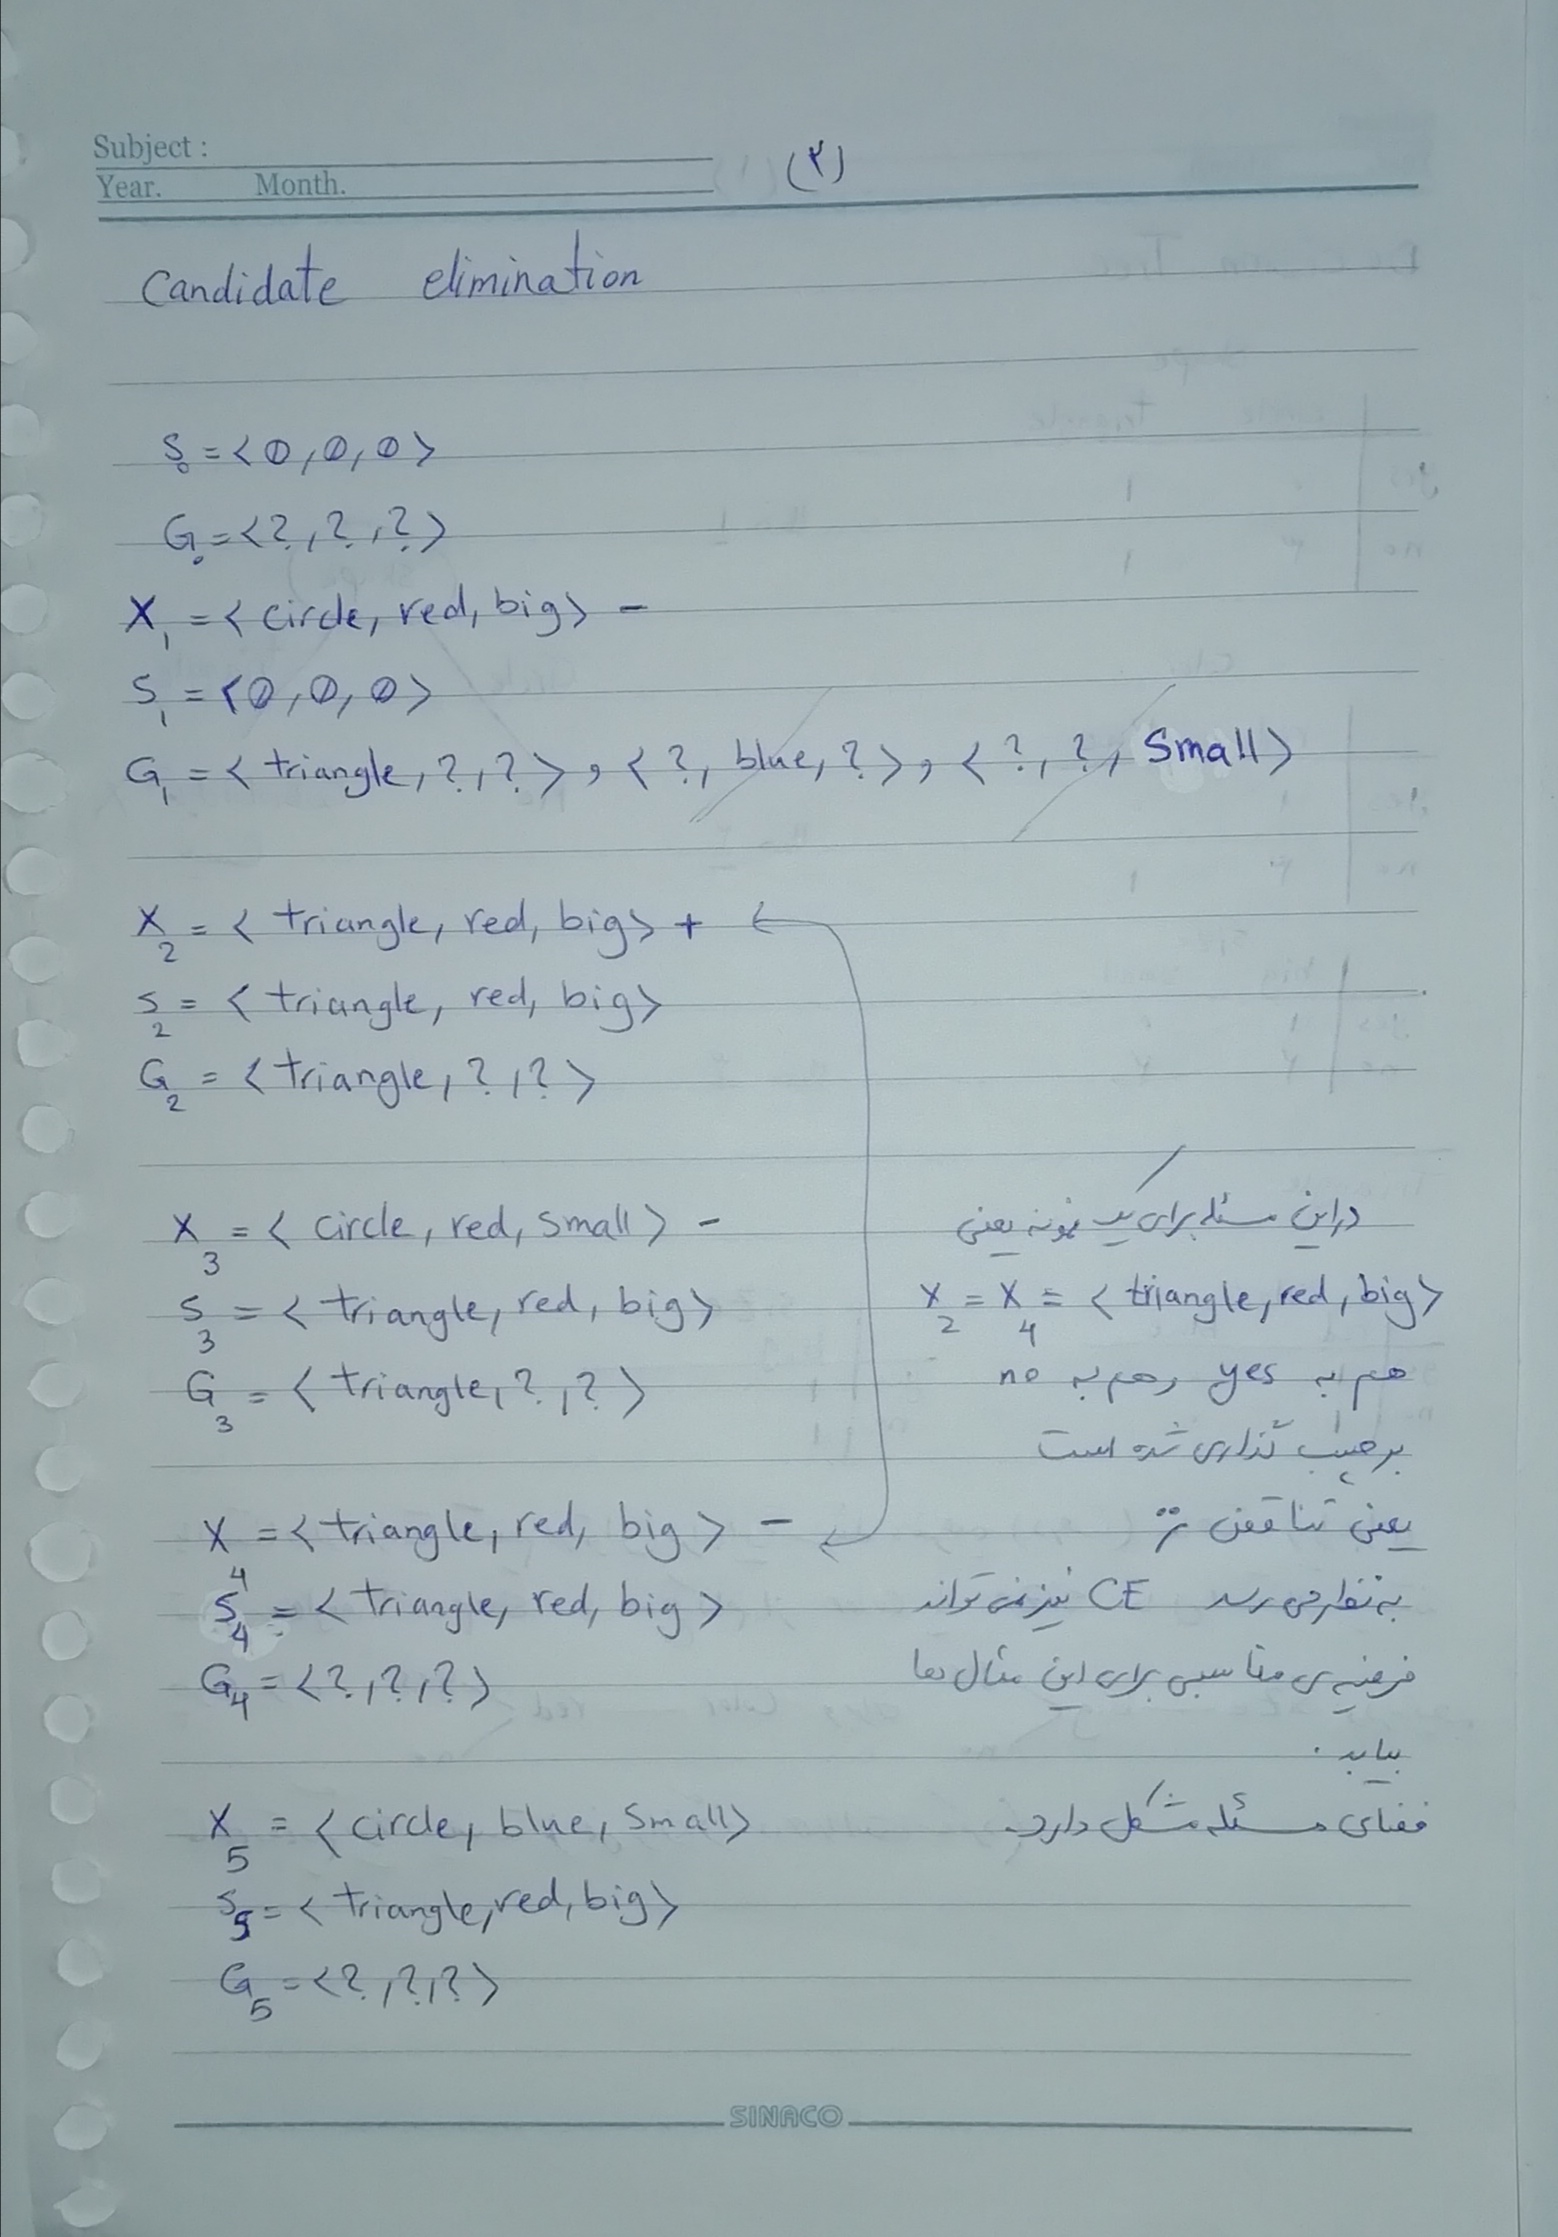 Subject :
Year. Month.
(۲)
Candidate elimination
S₀ = <∅, ∅, ∅>
G₀ = <?, ?, ?>
X₁ = < circle, red, big> -
S₁ = <∅, ∅, ∅>
G₁ = < triangle, ?, ?> , < ?, blue, ?> , < ?, ?, Small>
X₂ = < triangle, red, big> +
S₂ = < triangle, red, big>
G₂ = < triangle, ?, ?>
X₃ = < circle, red, small> -
S₃ = < triangle, red, big>
G₃ = < triangle, ?, ?>
X₄ = < triangle, red, big> -
S₄ = < triangle, red, big>
G₄ = <?, ?, ?>
X₅ = < circle, blue, small>
S₅ = < triangle, red, big>
G₅ = <?, ?, ?>
در این مسئله برای یک نمونه یعنی
X₂ = X₄ = < triangle, red, big>
هم به yes و هم به no
برچسب گذاری شده است
یعنی تناقض
به نظر می رسد CE نیز نمی تواند
فرضیه ی مناسبی برای این مثال ها
بیابد .
فضای مسئله مشکل دارد.
SINACO